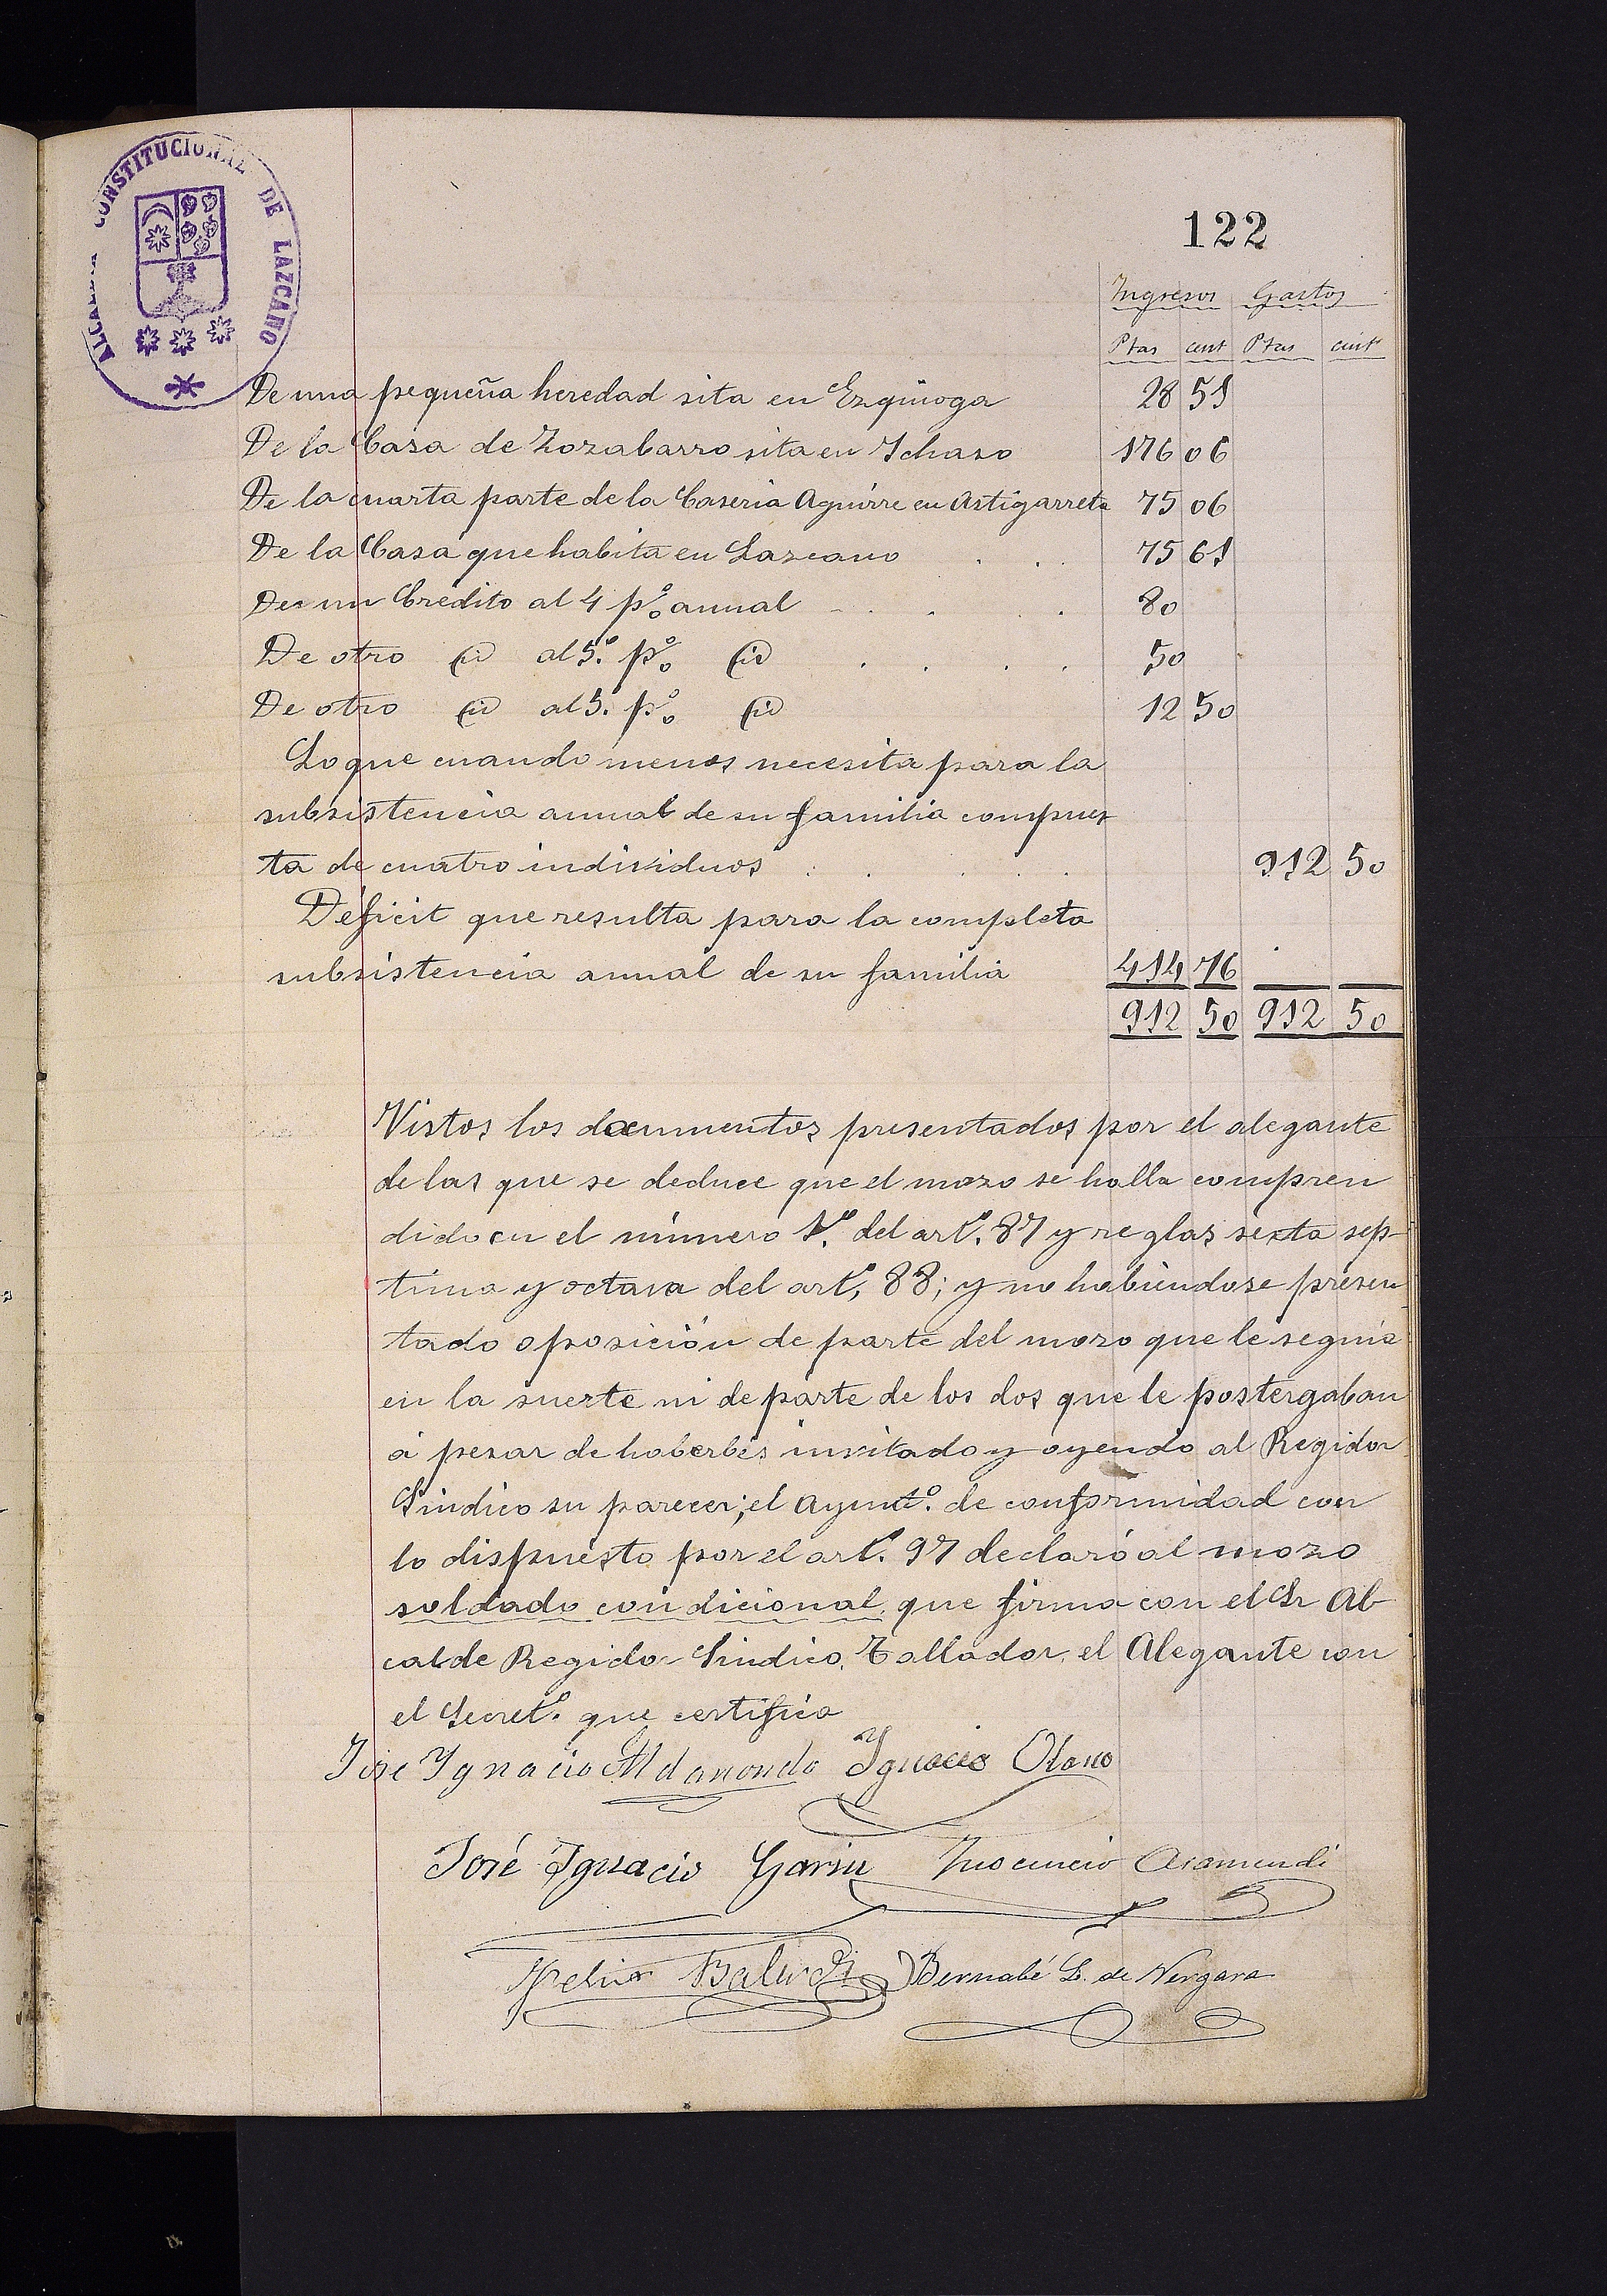 ALCALDIA CONSTITUCIONAL DE LAZCANO
122
Ingresos Gastos
Ptas cent Ptas cent
De una pequeña heredad sita en Ezquioga 28 51
De la Casa de Zozabarro sita en Ichaso 176 06
De la cuarta parte de la Caseria Aguirre en Astigarreta 75 06
De la Casa que habita en Lazcano . . . 75 61
De un Credito al 4 p% annal - . . . . 80
De otro id al 5º p% id . . . . 50
De otro id al 5º p% id 12 50
Lo que cuando menos necesita para la
subsistencia annal de su familia compues
ta de cuatro individuos . . . . 912 50
Déficit que resulta para la completa
subsistencia annal de su familia 414 76
912 50 912 50
Vistos los documentos presentados por el alegante
de los que se deduce que el mozo se halla compren
dido en el número 1º del artº. 87 y reglas sexta sep-
tima y octava del artº, 88; y no habiendose presen-
tado oposición de parte del mozo que le seguia
en la suerte ni de parte de los dos que le postergaban
á pesar de haberles invitado y oyendo al Regidor
Sindico su parecer; el Ayuntº. de conformidad con
lo dispuesto por el artº. 97 declaró al mozo
soldado condicional, que firma con el Sr Al-
calde Regidor Sindico, Tallador, el Alegante con
el Secretº. que certifica
Jose Ygnacio Aldanondo Ignacio Olano
José Ignacio Garin Inocencio Aramendi
Balerdi Bernabé L. de Vergara